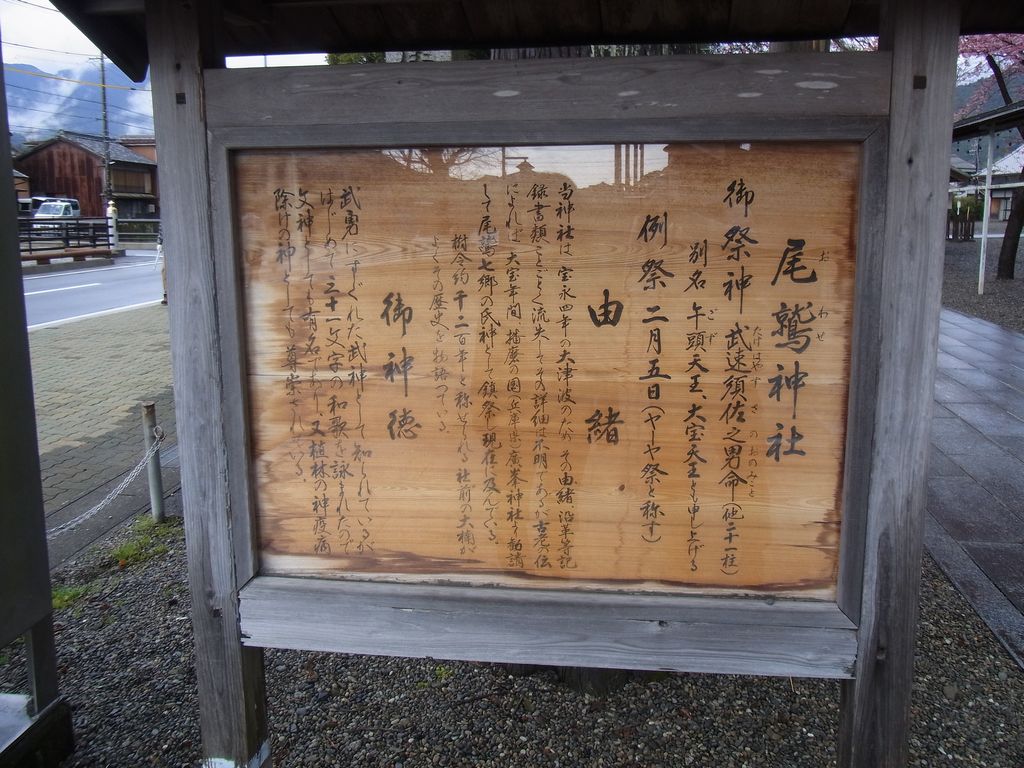 尾鷲神社
おわせ
御祭神 武速須佐之男命(他二十一柱)
たけはやすさのおのみこと
別名 午頭天王、大宝天王とも申し上げる
ごず
例祭 二月五日(ヤーヤ祭と称す)
由緒
当神社は宝永四年の大津波のため その由緒、沿革等記
録書類ことごとく流失してその詳細は不明であるが古老の伝
によれば、大宝年間、播磨の國(兵庫県)廣峯神社より勧請
して尾鷲七郷の氏神として鎮祭し現在に及んでいる。
樹令約千二百年と称せられる社前の大楠が
よくその歴史を物語っている。
御神徳
武勇にすぐれた武神として知られているが
はじめて三十一文字の和歌を詠まれたので
文神としても有名であり、又植林の神疫病
除けの神としても尊崇されている。